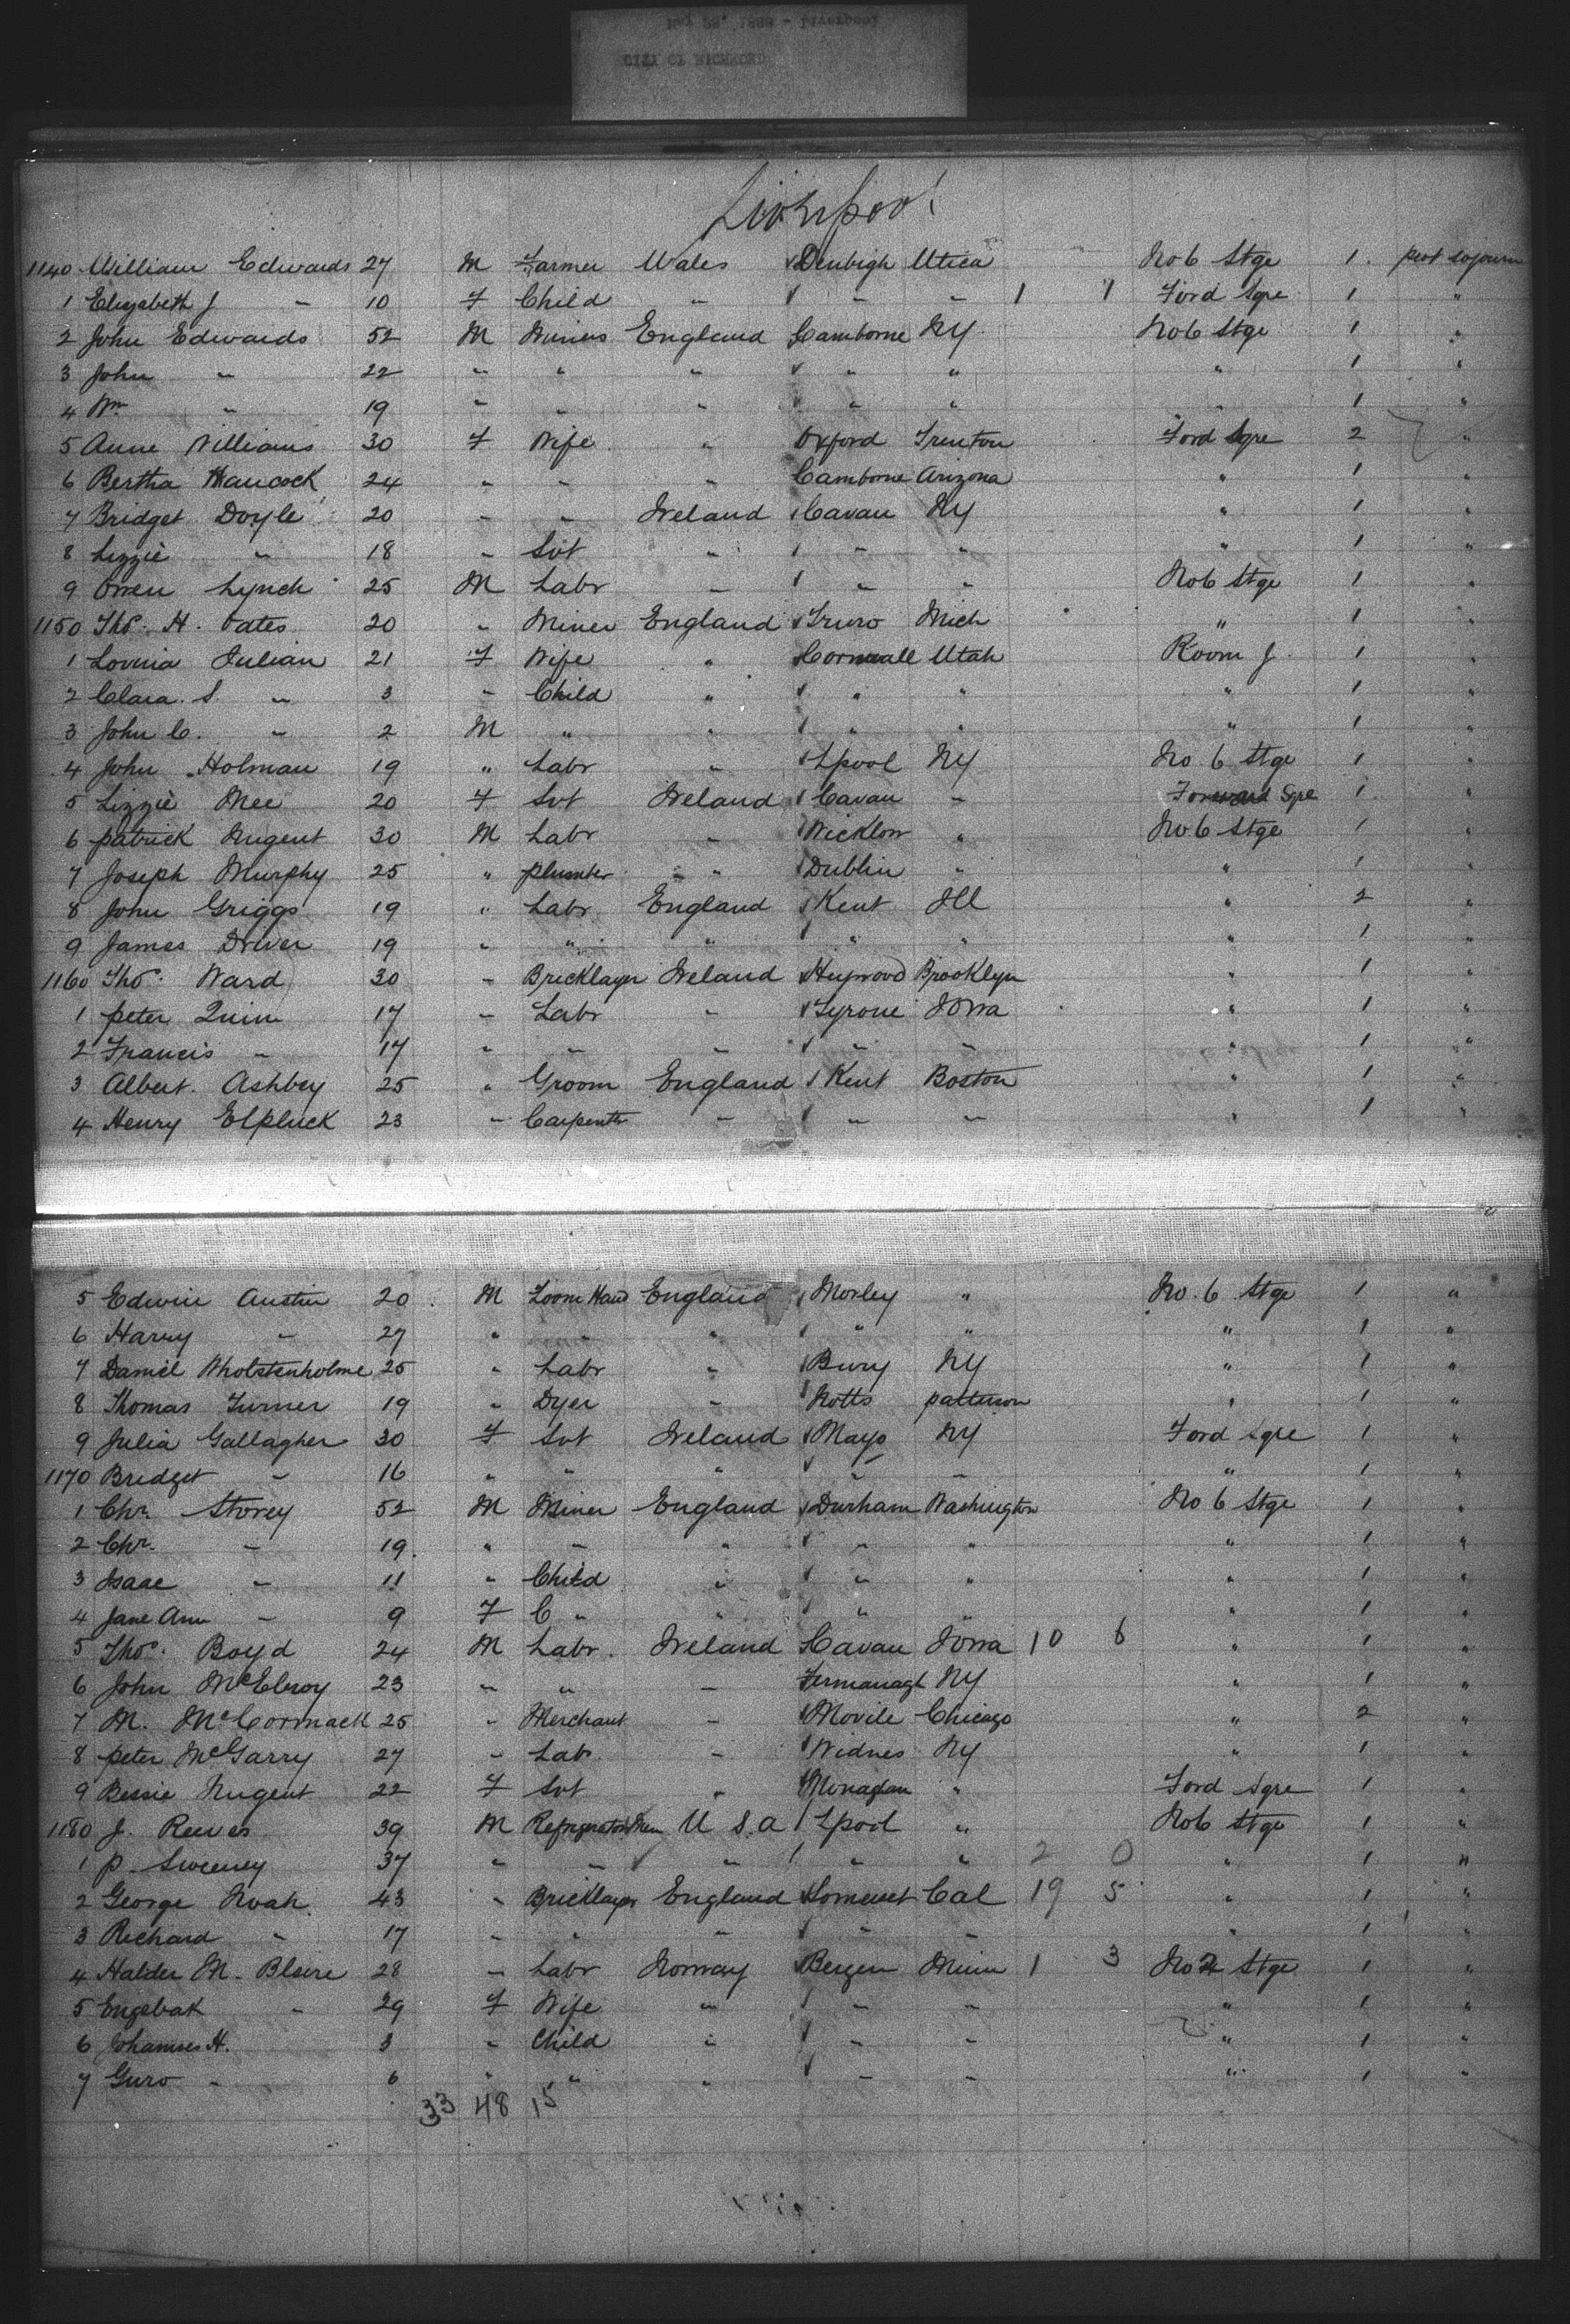 May 28, 1888 - Liverpool
CITY OF RICHMOND
Liverpool
1140 William Edwards 27 M Farmer Wales Denbigh Utica No 6 Stge 1 prot sojourn
1 Elizabeth J " 10 F Child " " " 1 1 Ford Sgre 1 "
2 John Edwards 52 M Miners England Camborne NY No 6 Stge 1 "
3 John " 22 " " " " " " 1 "
4 Wm " 19 " " " " " " 1 "
5 Anne Williams 30 F Wife " Oxford Trenton Ford Sgre 2 "
6 Bertha Hancock 24 " " " Camborne Arizona " 1 "
7 Bridget Doyle 20 " " Ireland Cavan NY " 1 "
8 Lizzie " 18 " Svt " " " " 1 "
9 Owen Lynch 25 M Labr " " " No 6 Stge 1 "
1150 Thos. H. Oates 20 " Miner England Truro Mich " 1 "
1 Lovinia Julian 21 F Wife " Cornwall Utah Room J 1 "
2 Clara. S. " 3 " Child " " " " 1 "
3 John C. " 2 M " " " " " 1 "
4 John Holman 19 " Labr " Lpool NY No 6 Stge 1 "
5 Lizzie Mee 20 F Svt Ireland Cavan " Forward Sgre 1 "
6 Patrick Nugent 30 M Labr " Wicklow " No 6 Stge 1 "
7 Joseph Murphy 25 " Plumber " " Dublin " " 1 "
8 John Griggs 19 " Labr England Kent Ill " 2 "
9 James Driver 19 " " " " " " 1 "
1160 Thos. Ward 30 " Bricklayer Ireland Heywood Brooklyn " 1 "
1 Peter Quinn 17 " Labr " Tyrone Iowa " 1 "
2 Francis " 17 " " " " " " 1 "
3 Albert Ashbey 25 " Groom England Kent Boston " 1 "
4 Henry Elpluck 23 " Carpenter " " " " 1 "
5 Edwin Austin 20 M Loom Hand England Morley " No. 6 Stge 1 "
6 Harry " 27 " " " " " " 1 "
7 Daniel Wholstenholme 25 " Labr " Bury NY " 1 "
8 Thomas Turner 19 " Dyer " Notts Patterson " 1 "
9 Julia Gallagher 30 F Svt Ireland Mayo NY Ford Sgre 1 "
1170 Bridget " 16 " " " " " " 1 "
1 Chr. Storey 52 M Miner England Durham Washington No 6 Stge 1 "
2 Chr. " 19 " " " " " " 1 "
3 Isaac " 11 " Child " " " " 1 "
4 Jane Ann " 9 F C " " " " " 1 "
5 Thos. Boyd 24 M Labr. Ireland Cavan Iowa 10 6 " 1 "
6 John McElroy 23 " " " Fermanagh NY " 1 "
7 M. McCormack 25 " Merchant " Movile Chicago " 2 "
8 Peter McGarry 27 " Labr. " Widnes NY " 1 "
9 Bessie Nugent 22 F Svt " Monaghan " Ford Sgre 1 "
1180 J. Reeves 39 M Refrigerator Men U S. A Lpool " No 6 Stge 1 "
1 P. Sweeney 37 " " " " " 2 0 " 1 "
2 George Noah 43 " Bricklayer England Somerset Cal 19 5 " 1 "
3 Richard " 17 " " " " " " 1 "
4 Halder M. Bleire 28 " Labr Norway Bergen Minn 1 3 No 2 Stge 1 "
5 Engebak " 29 F Wife " " " " 1 "
6 Johannes H. 3 " Child " " " " 1 "
7 Guro " 6 " " " " " " 1 "
33 48 15